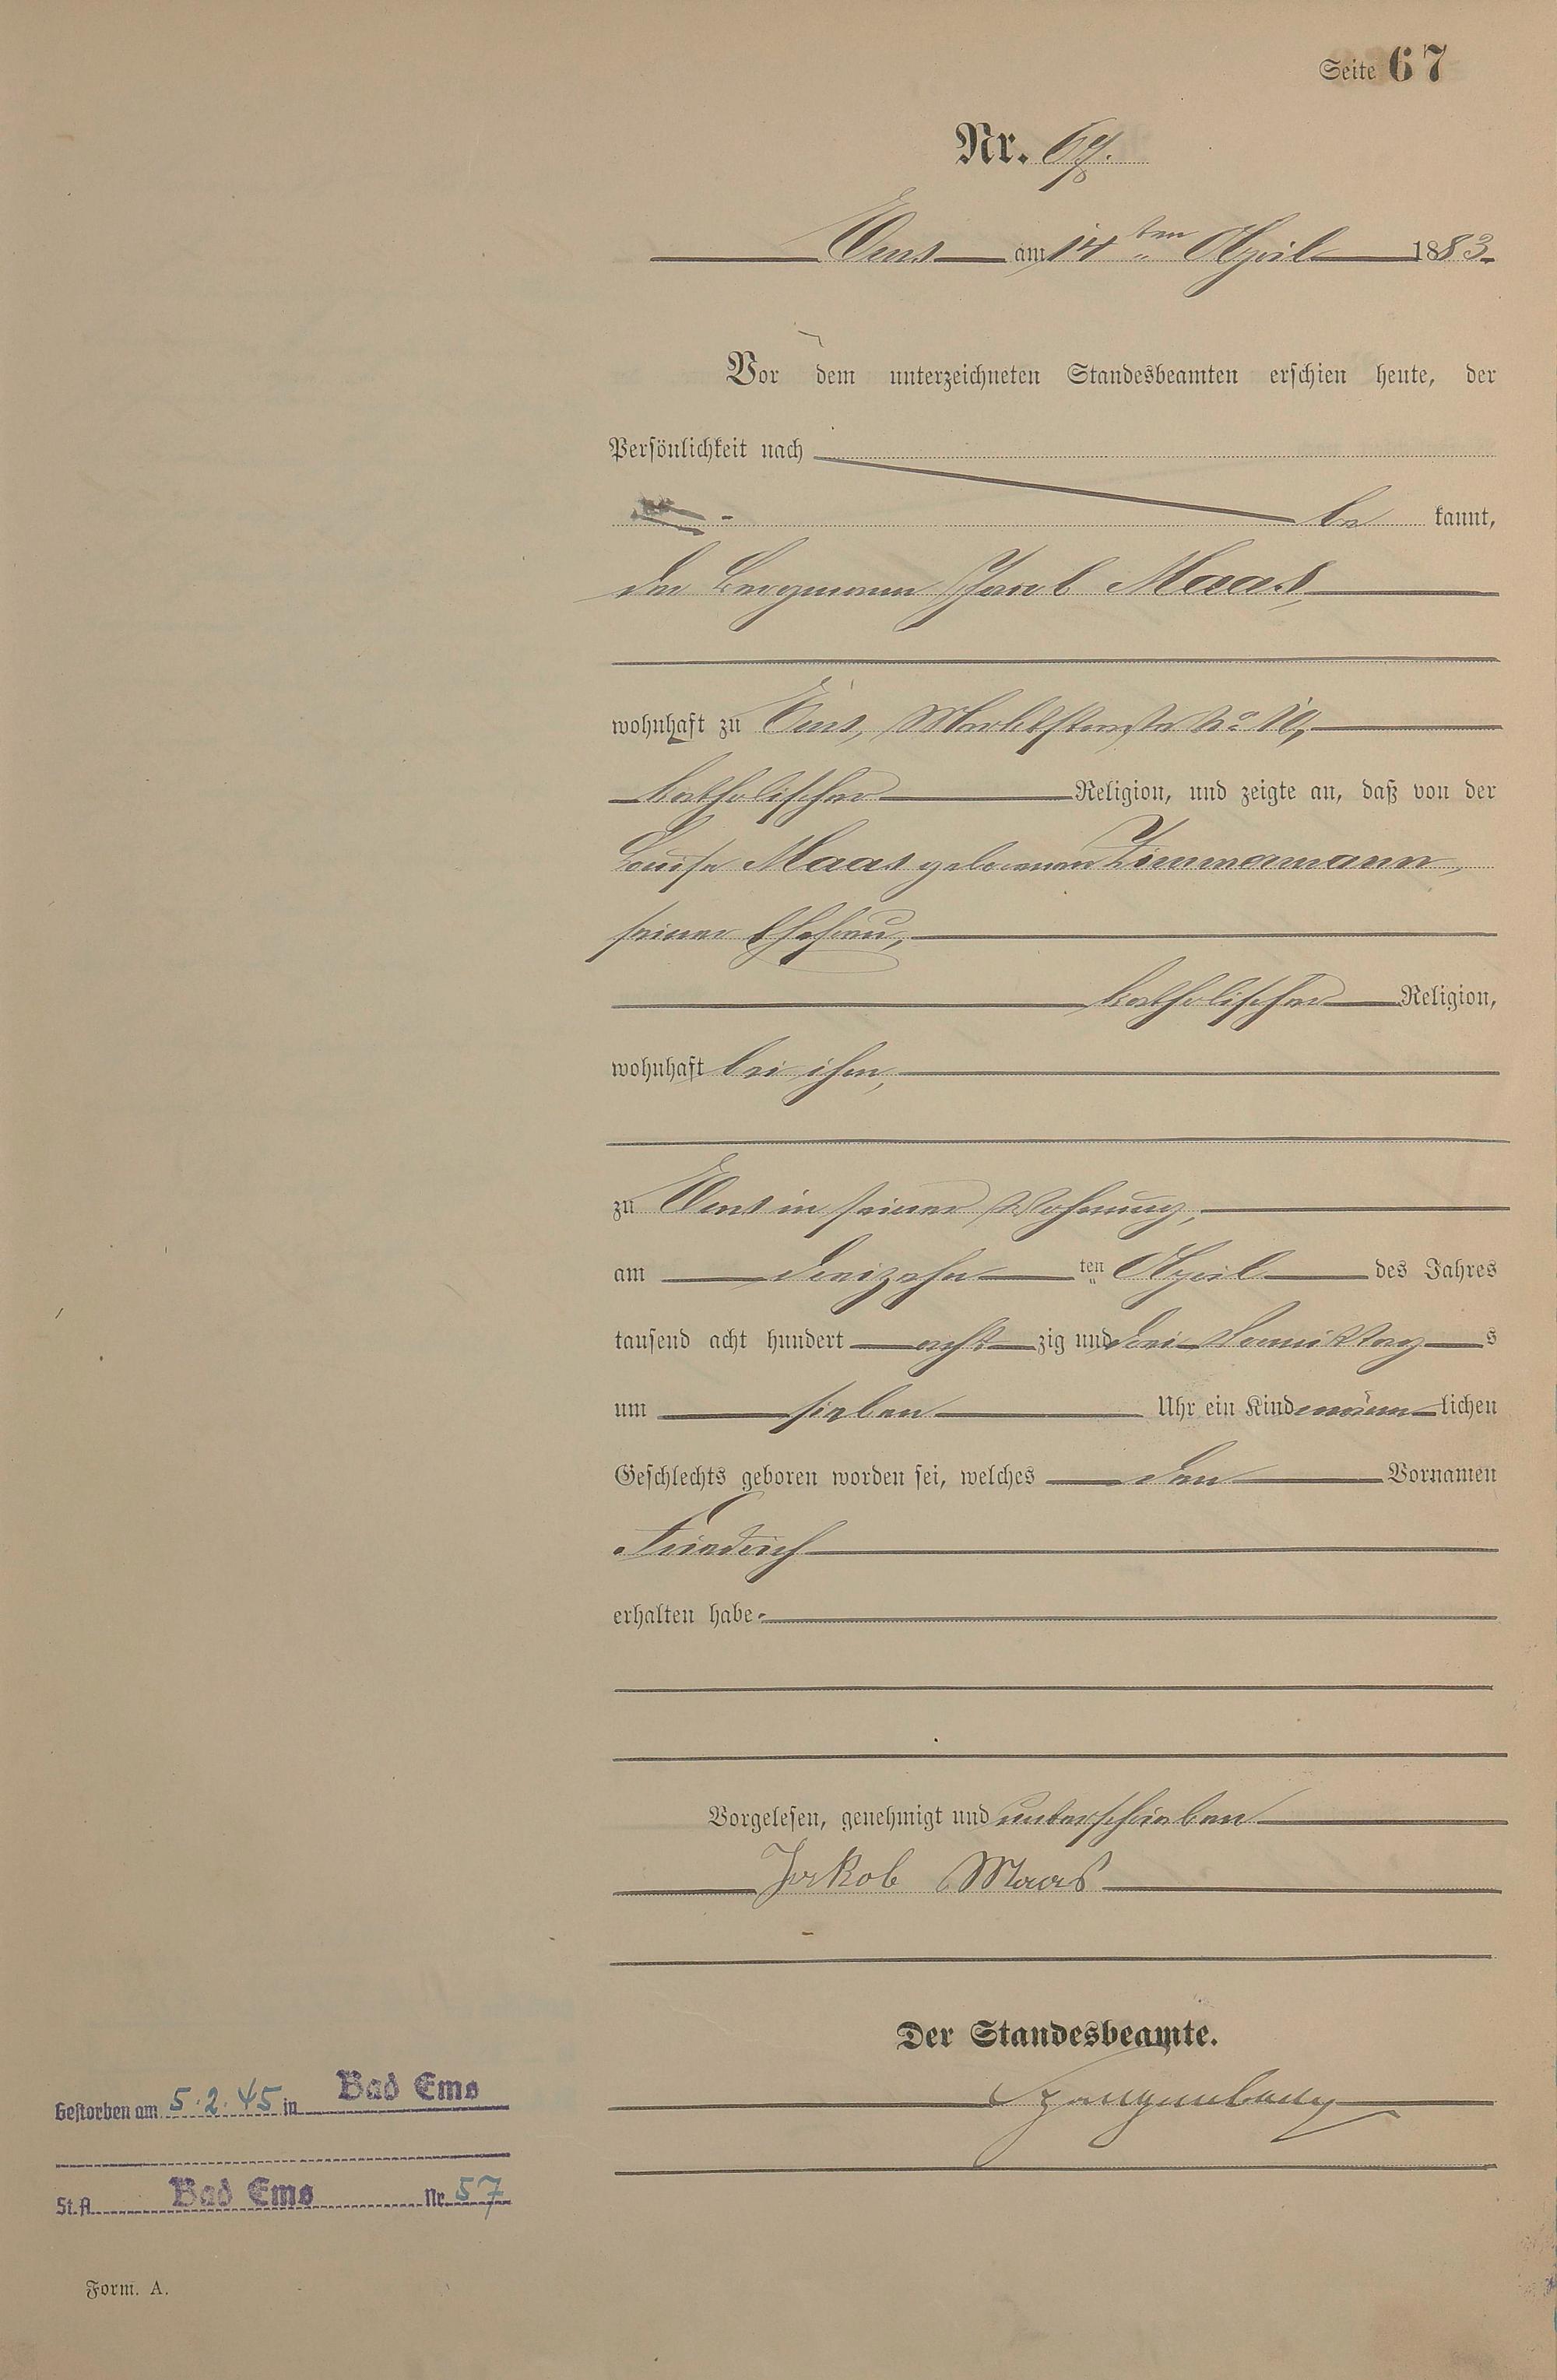 Seite 67
Nr. 67.
Ems am 14ten April 1883.
Vor dem unterzeichneten Standesbeamten erschien heute, der
Persönlichkeit nach
be kannt,
der Bergmann Jacob Maas,
wohnhaft zu Ems, Marktstraße No 10,
katholischer Religion, und zeigte an, daß von der
Louise Maas geborenen Zimmermann,
seiner Ehefrau,
katholischer Religion,
wohnhaft bei ihm,
zu Ems in seiner Wohnung,
am dreizehn ten April des Jahres
tausend acht hundert acht zig und drei Vormittag s
um sieben Uhr ein Kind männ lichen
Geschlechts geboren worden sei, welches den Vornamen
Friedrich
erhalten habe.
Vorgelesen, genehmigt und unterschrieben
Jakob Maas
Der Standesbeamte.
Gestorben am 5.2.45 in Bad Ems
St.A. Bad Ems Nr. 57
Form. A.